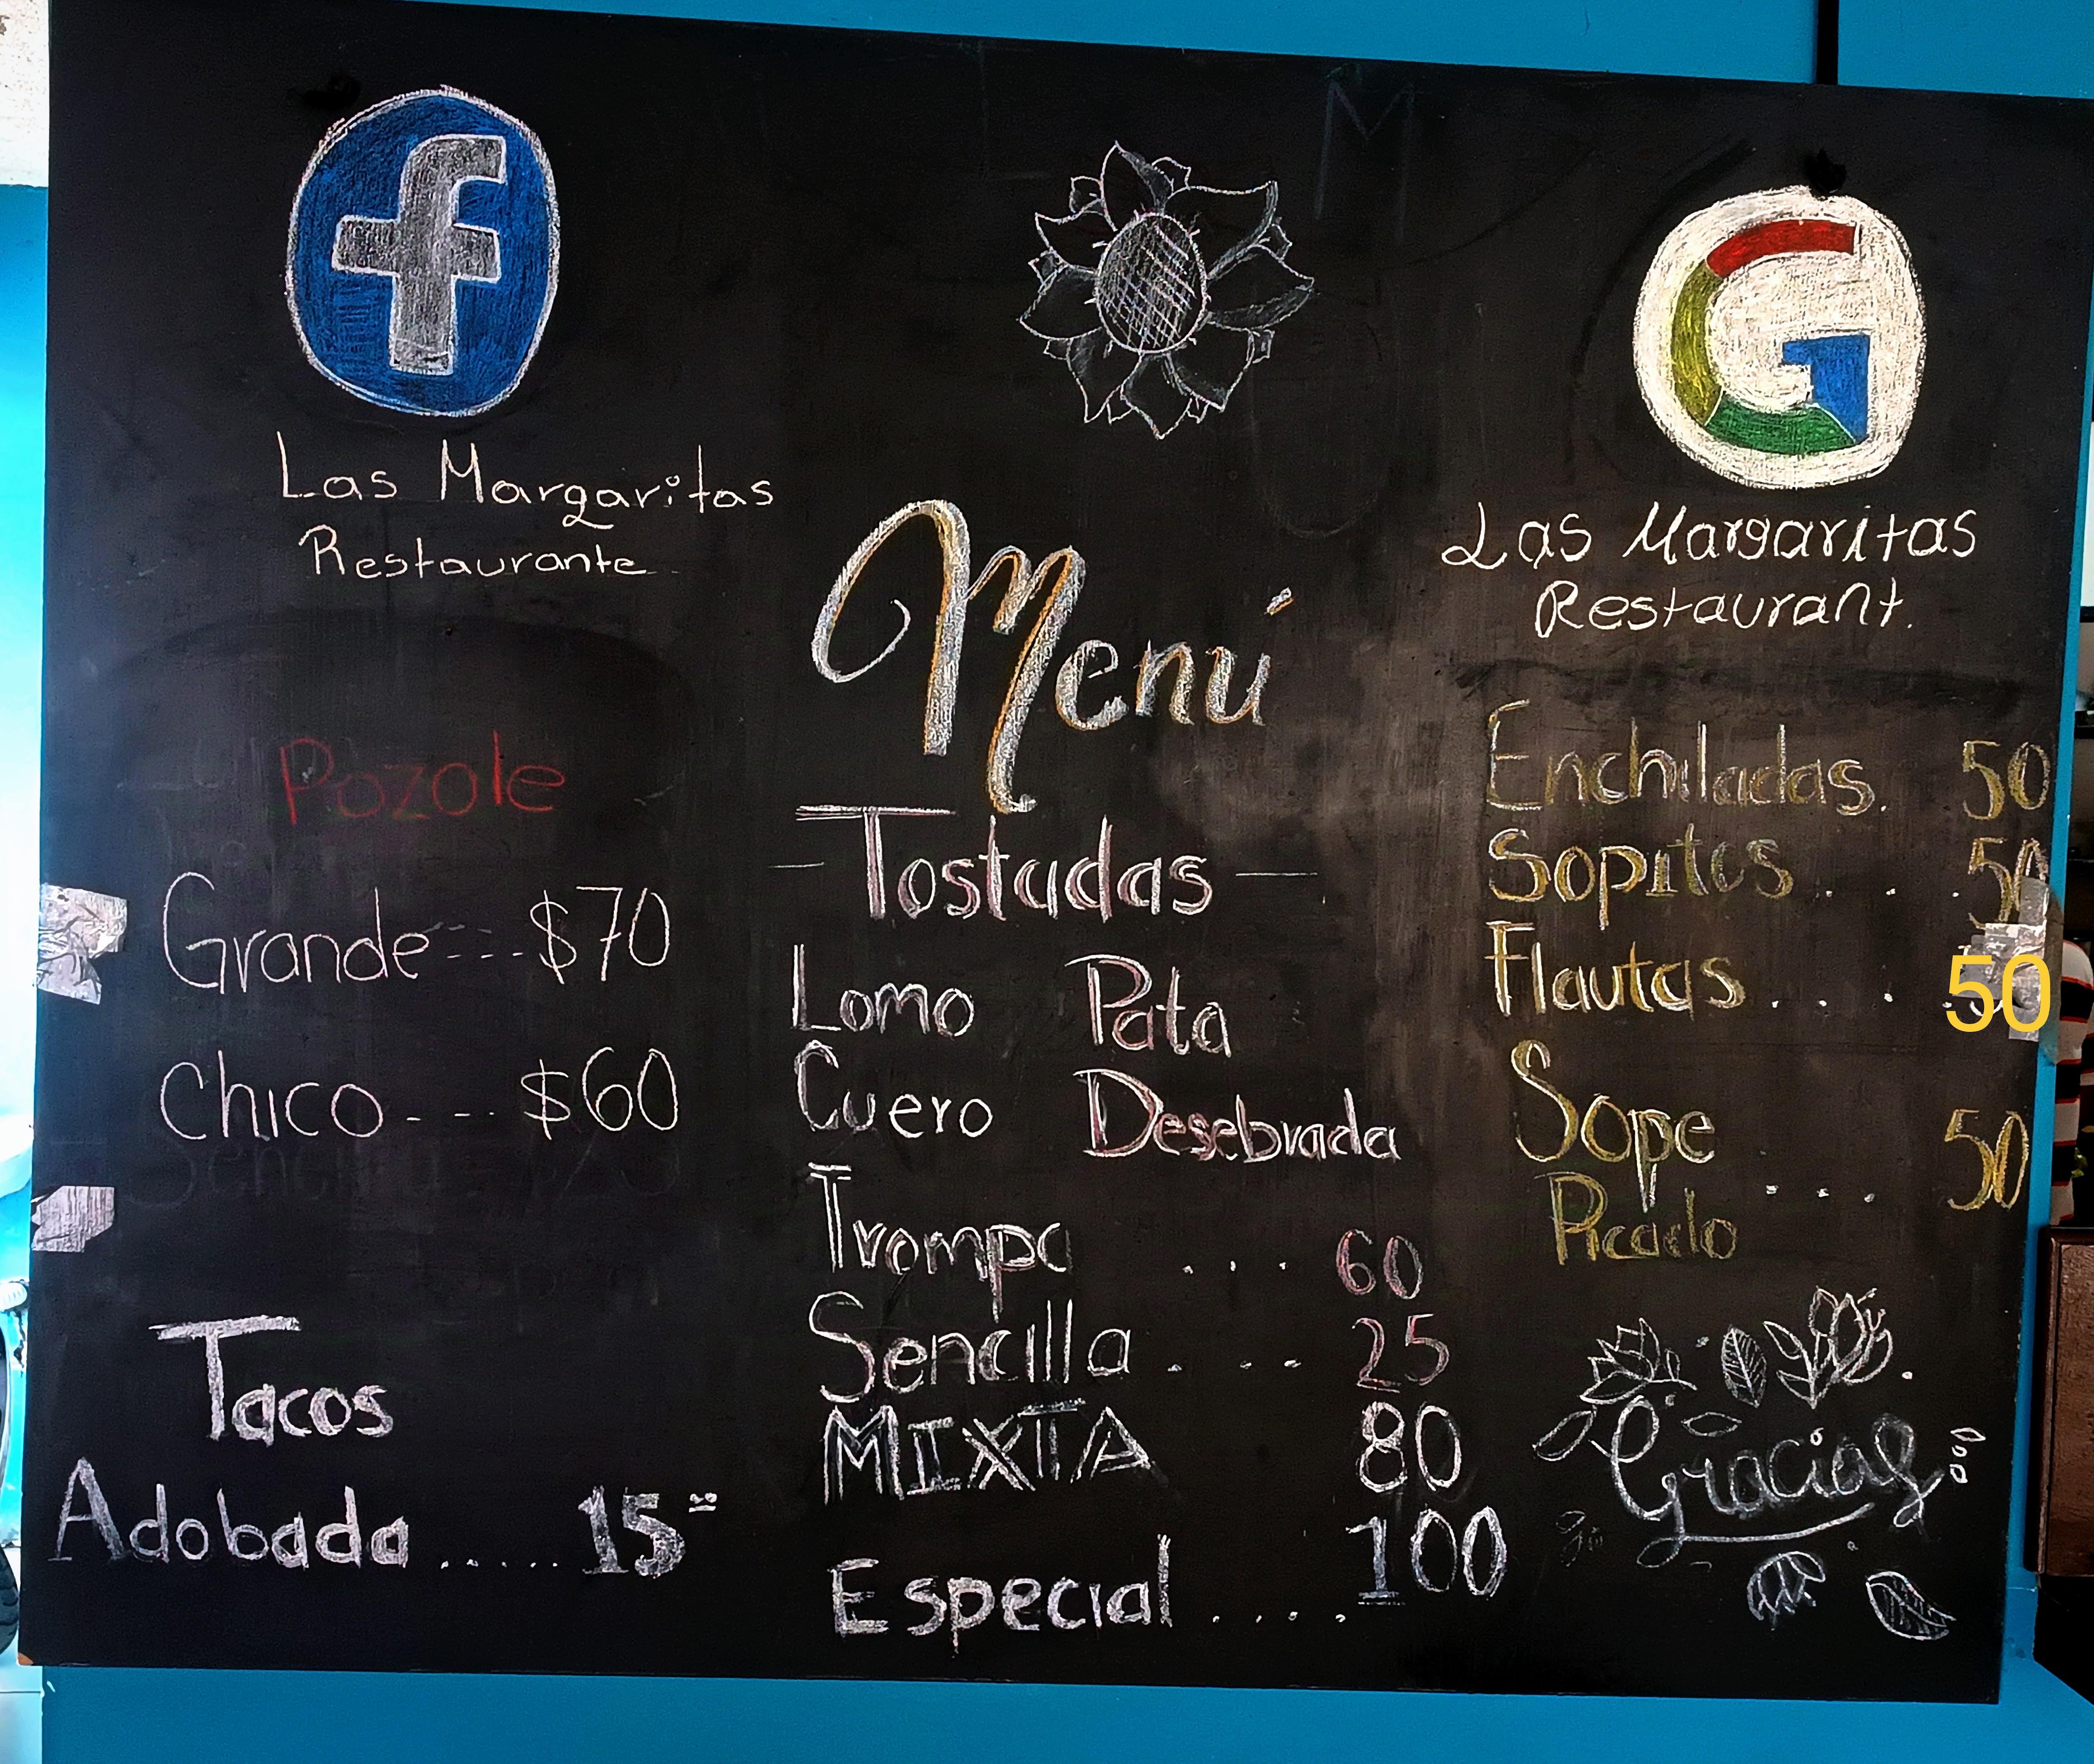 Las Margaritas
Restaurante
Pozole
Grande---$70
Chico---$60
Tacos
Adobada.....15
Menú
-Tostadas-
Lomo Pata
Cuero Desebrada
Trompa ... 60
Sencilla .--- 25
MIXTA 80
Especial .... 100
Las Margaritas
Restaurant.
Enchiladas. 50
Sopitos . . . 50
Flautas . . . . 50
Sope
... 50
Picado
Gracias